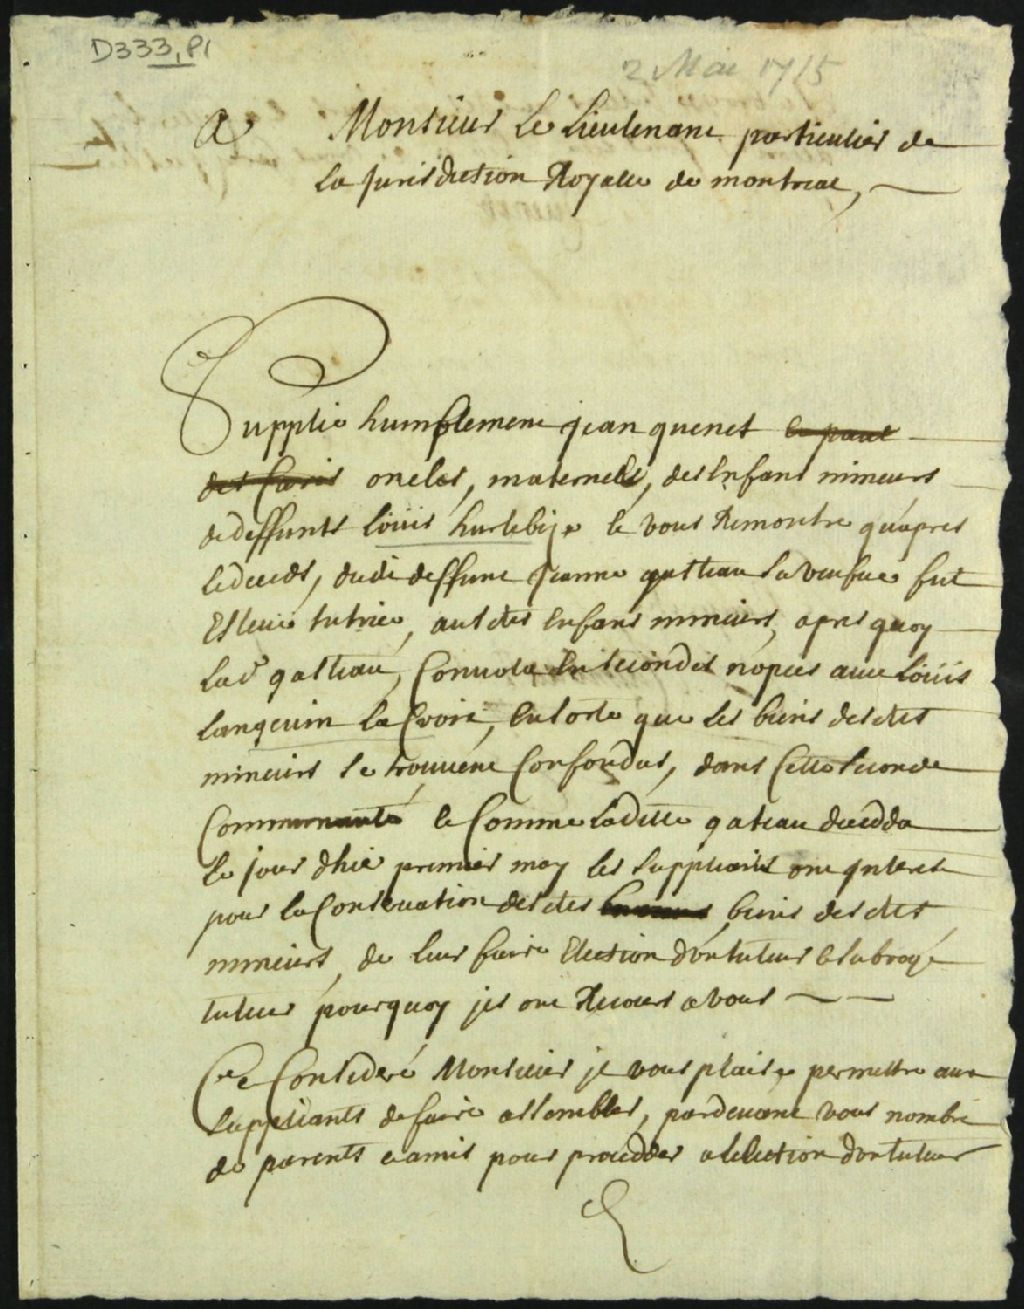 D333, P1
2 Mai 1715
A Monsieur Le Lieutenant particulier de
La Jurisdiction Royalle de montreal,
Supplie humblement jean quenet
oncles, maternels, des Enfans mineurs
de deffunts Louis hurtebize le vous Remontre qu'apres
le deceds, dudi deffunt Jeanne gatteau La veufue fut
Esleue tutrice, ausdes Enfans mineurs, apres quoy
Lad gatteau, Conuola En secondes nopces auec Loüis
Langeuin La Croix, En sorte que Les biens desdts
mineurs se trouuent Confondus, dans Cette seconde
Communauté & Comme Laditte gateau decedda
le jour d'hier premier may les suppliants ont jnterest
pour la Conseruation desdts biens desdts
mineurs, de leur faire Election d'un tuteur & subrogé
tuteur pourquoy jls ont Recours a vous
Ce Consideré Monsieur jl vous plaise permettre aux
suppliants de faire assembler, pardeuant vous nombre
de parents & amis pour procedder a l'election d'un tuteur
&